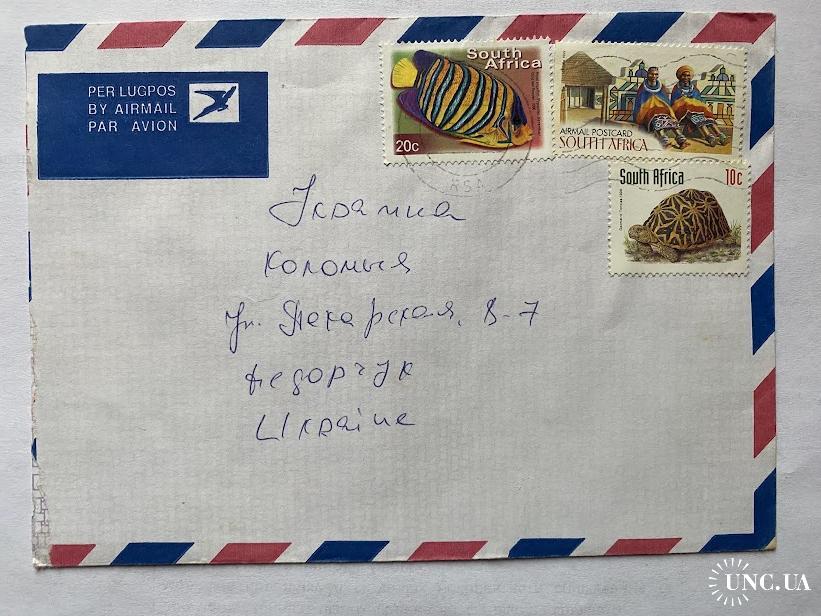 PER LUGPOS
BY AIRMAIL
PAR AVION
South
Africa
20c
AIRMAIL POSTCARD
SOUTH AFRICA
South Africa 10c
RSA
Украина
Коломыя
ул. Пекарская, 8-7
Федорчук
Ukraine
UNC.UA